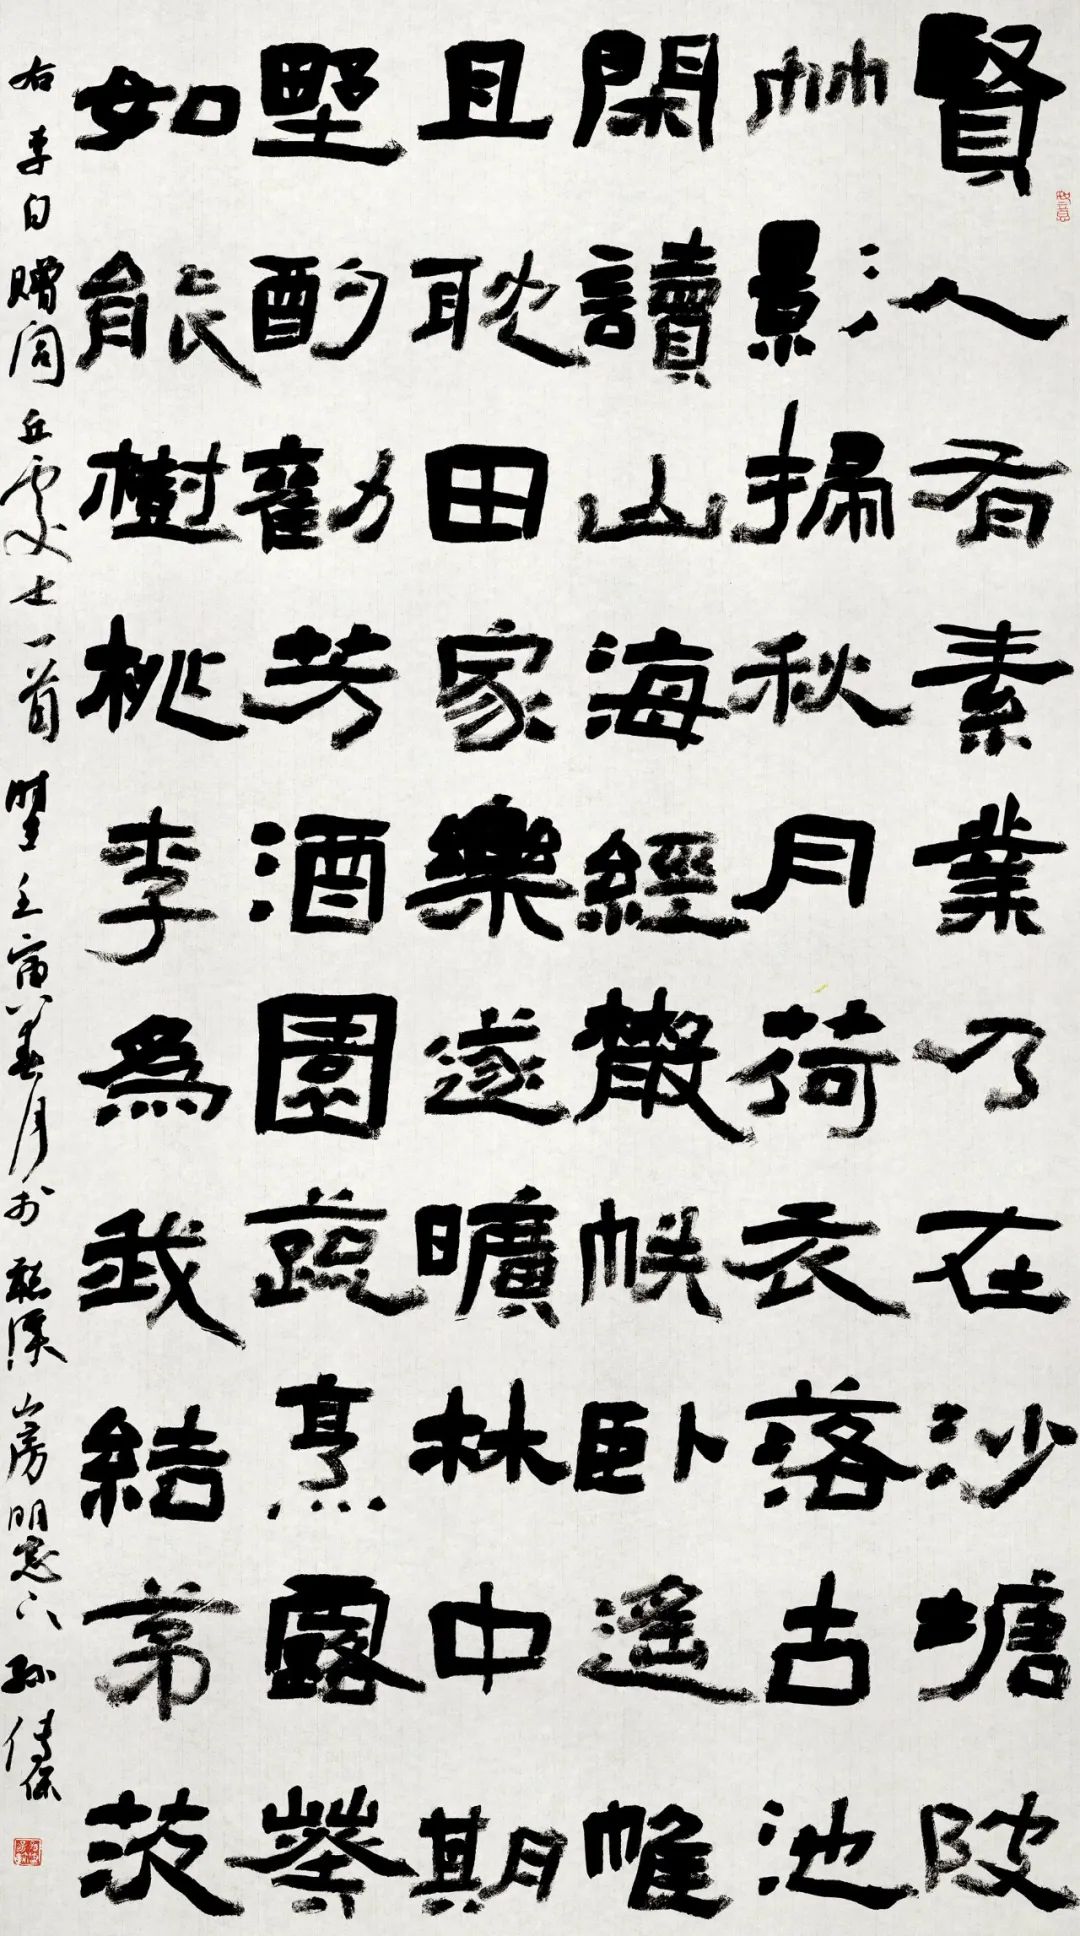 賢人有素業乃在沙塘陂
竹影掃秋月荷衣落古池
閑讀山海經散帙臥遙帷
且耽田家樂遂曠林中期
野酌勸芳酒園蔬烹露葵
如能樹桃李為我結茅茨
右李白贈閭丘處士一首時壬寅春月於聽溪山房明窗下孫傳保
如意